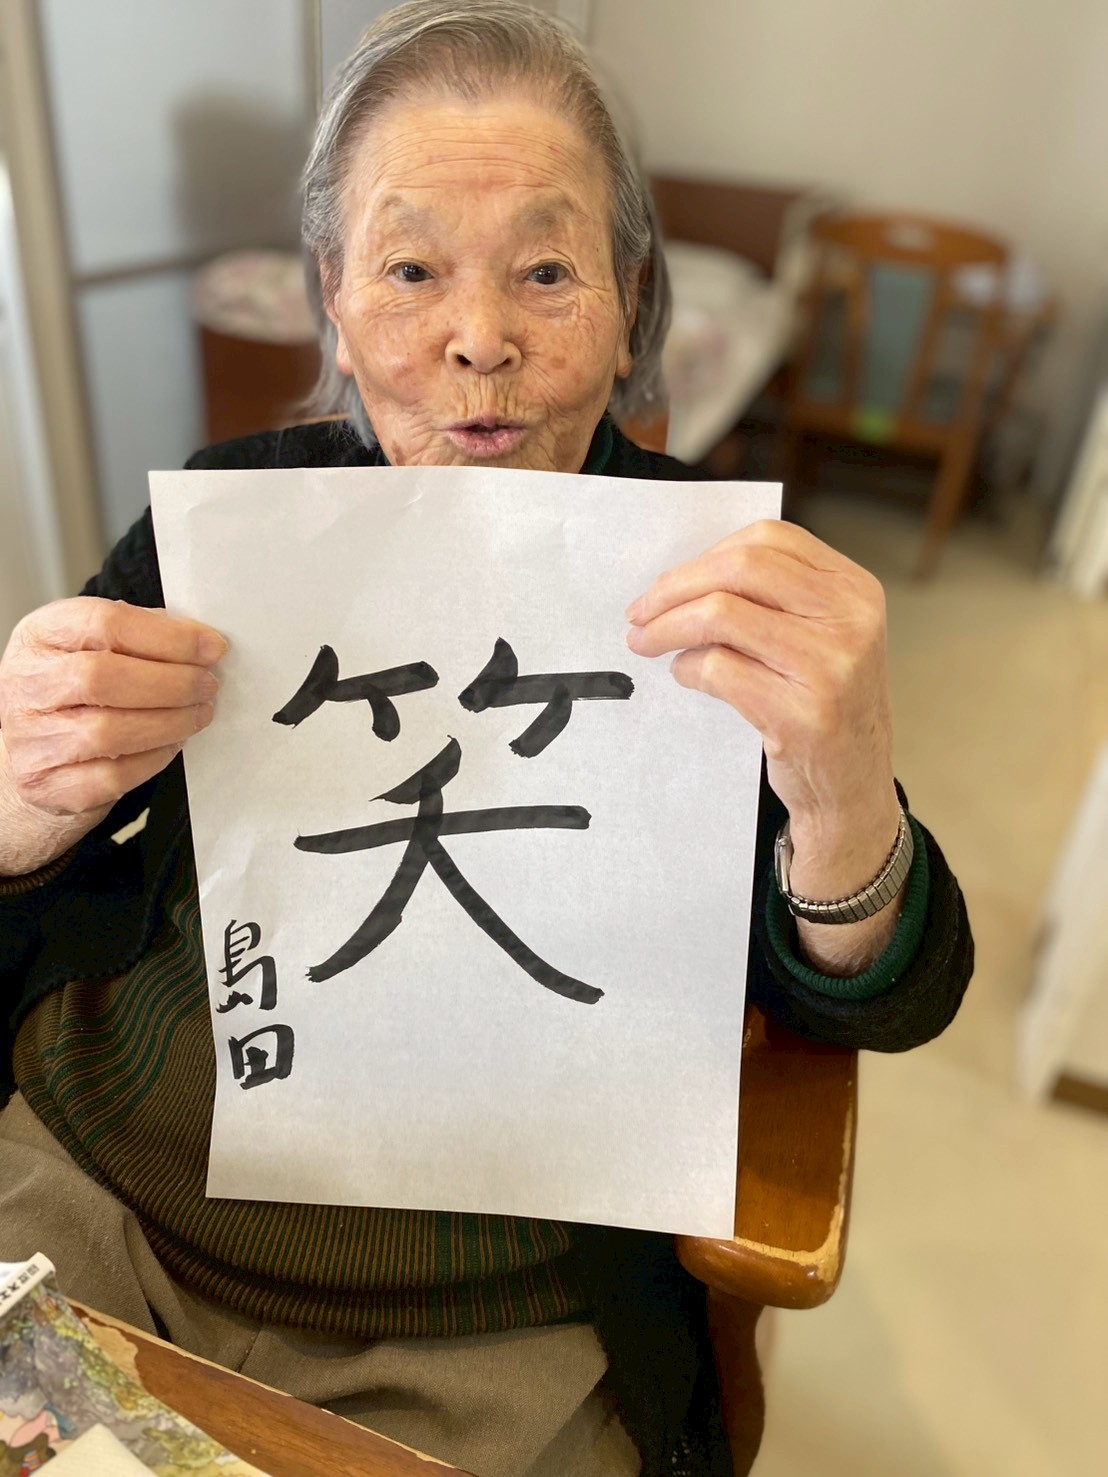 笑
島田